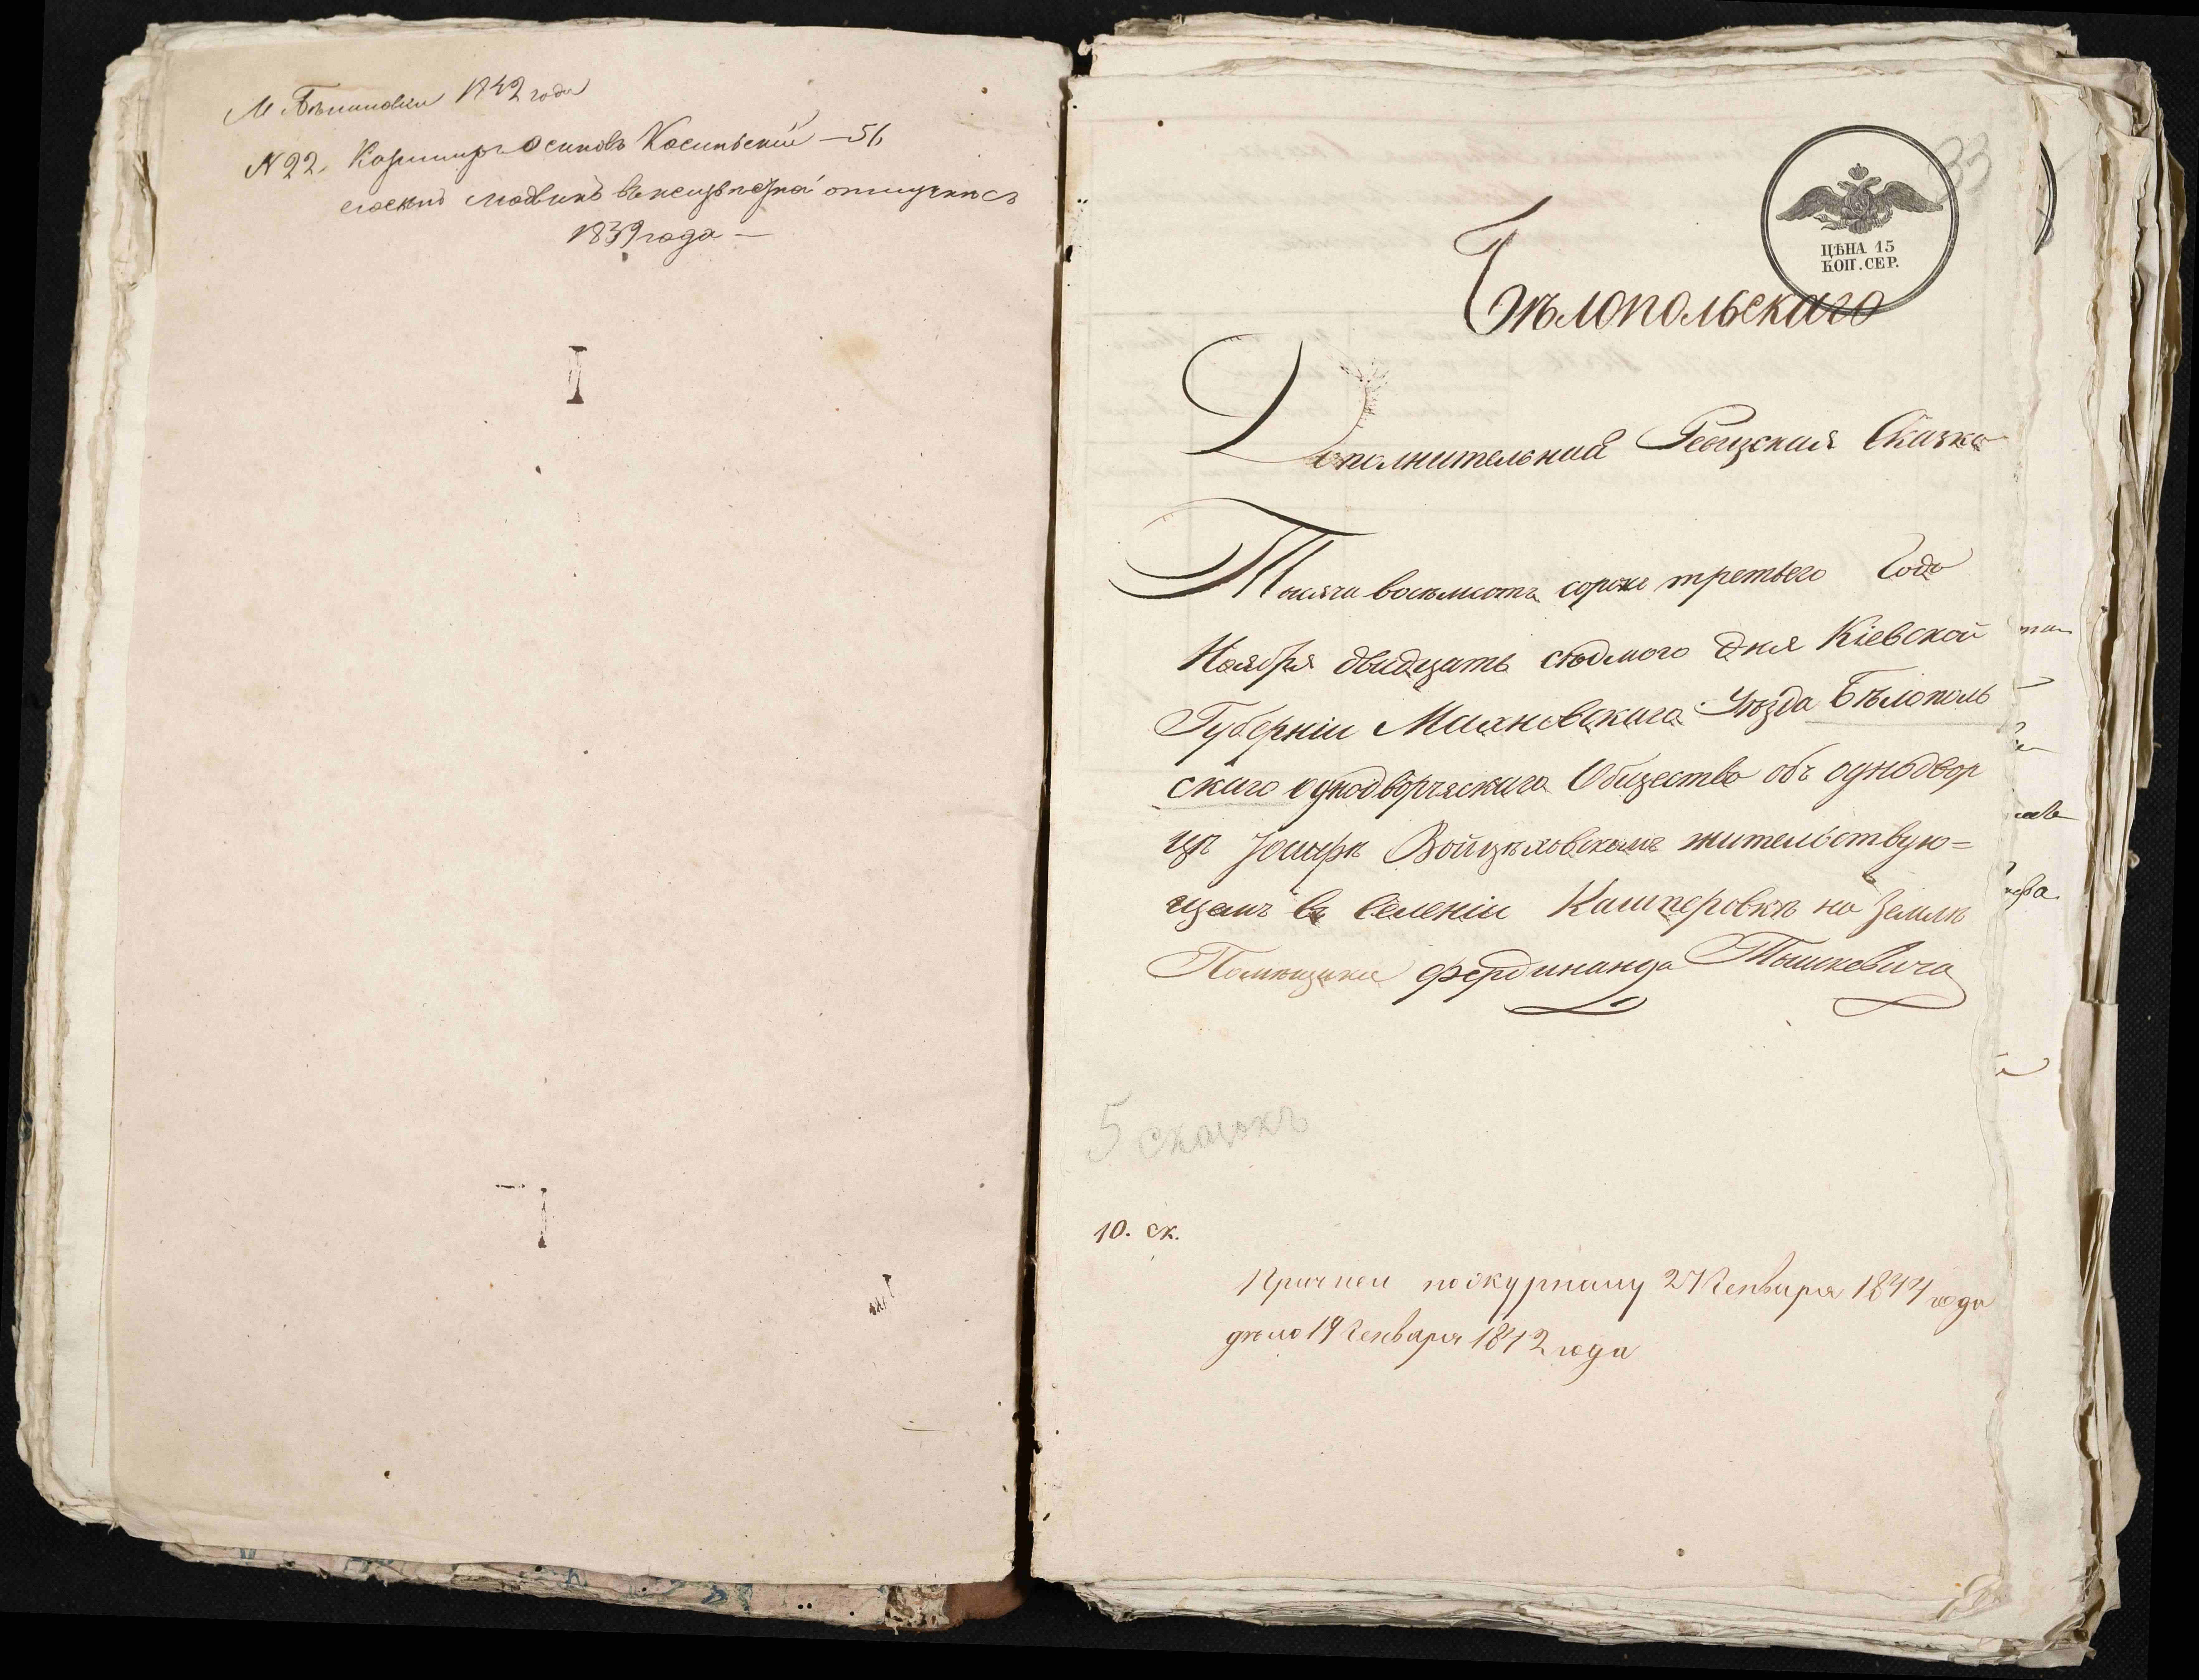 1842 года
N 22. Казимиръ Осиповъ Косинскій — 56
1839 года —
33
ЦѢНА 15
КОП. СЕР.
Бѣлопольскаго
Дополнительная Ревизская Сказка
Тысяча восемсотъ сорокъ третьего Года
Ноября двадцать седмого дня Кіевской
Губерніи Махновскаго Уѣзда Бѣлополь
скаго однодворческаго Общества объ однодвор
цѣ Іосифѣ Войцѣховскомъ жительствую=
щемъ въ Селеніи Кашперовкѣ на Землѣ
Помѣщика Фердинанда Тышкевича
5 сказокъ
10. ск.
по журналу 27 Генваря 1844 года
дѣло 19 Генваря 1842 года